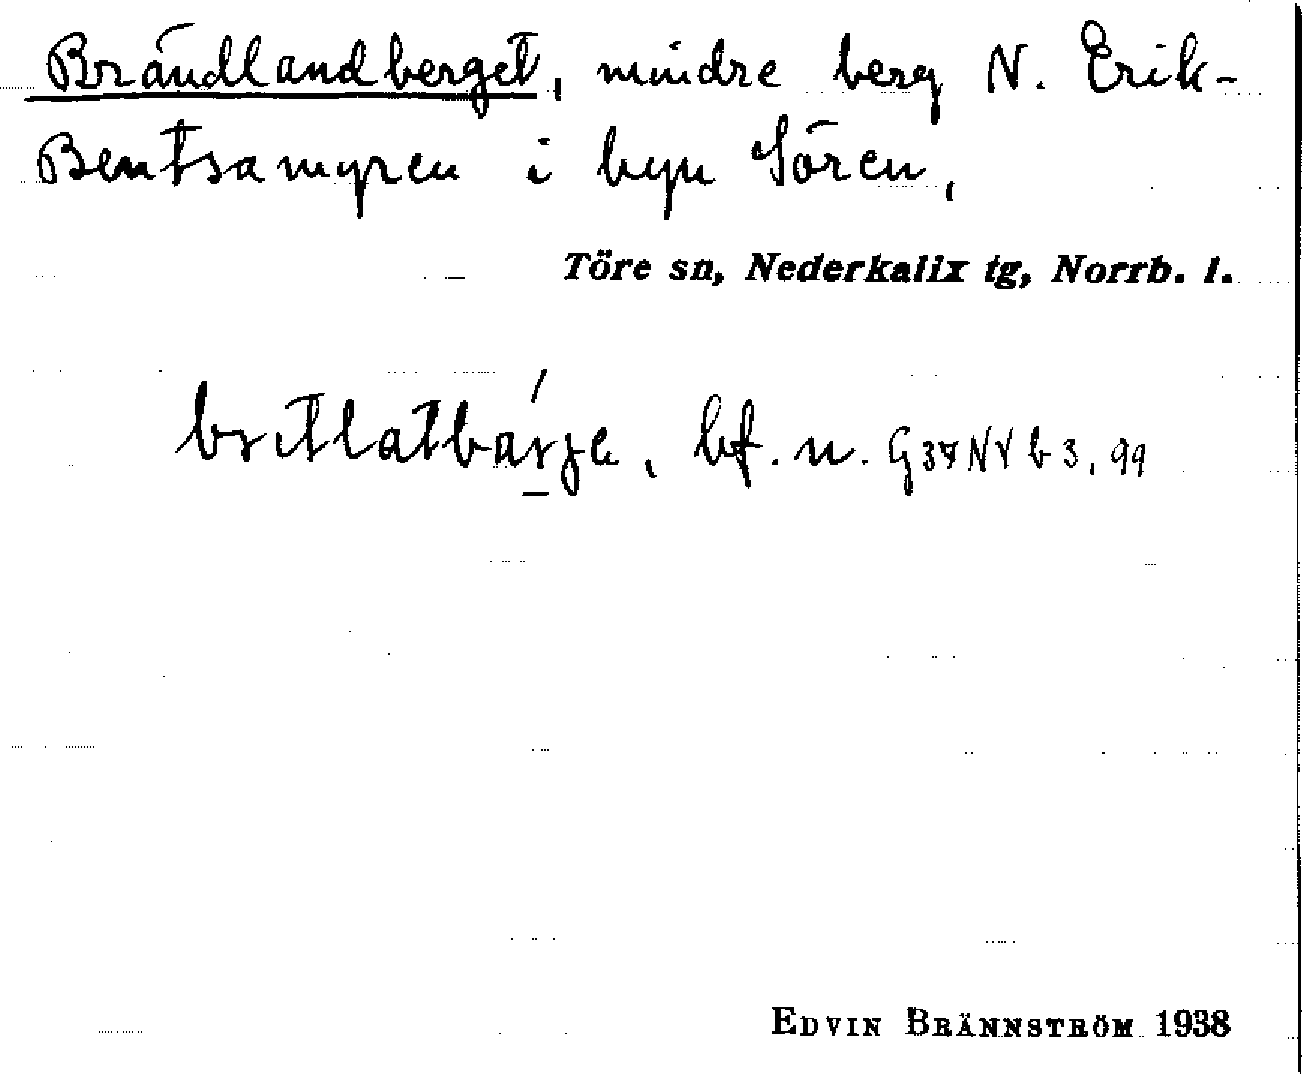 Brändlandberget, mindre berg N. Erik-
Bentsamyren i byn Sören,
Töre sn, Nederkalix tg, Norrb. l.
bf. n. G37NV b 3, 99
EDVIN BRÄNNSTRÖM 1938